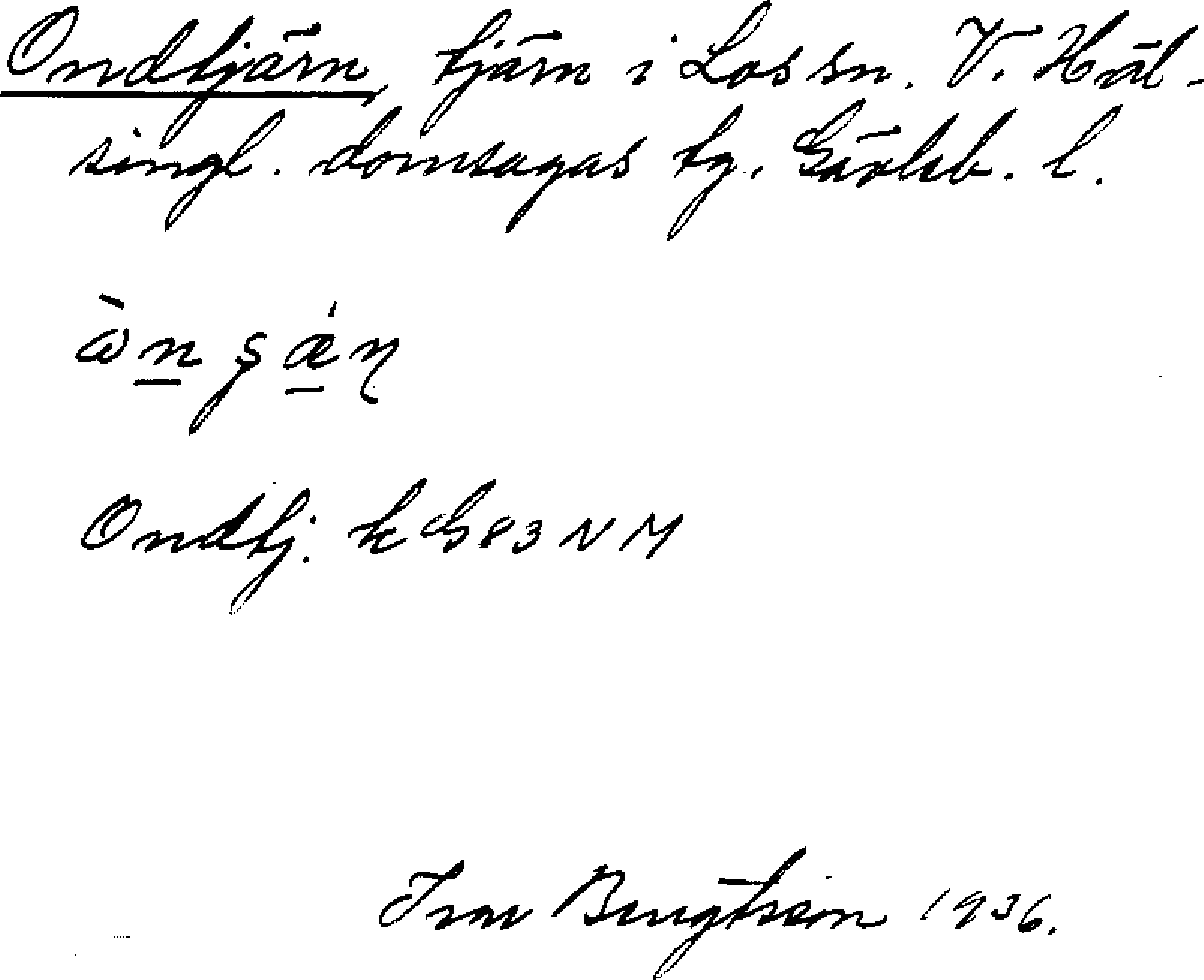 Ondtjärn, tjärn i Los sn. V. Häl-
singl. domsagas tg. Gävleb. l.
ꞷ̀n̠ ʂǽ̠ɳ
Ondtj. k GS 83 NV
Ivar Bengtsson 1936.